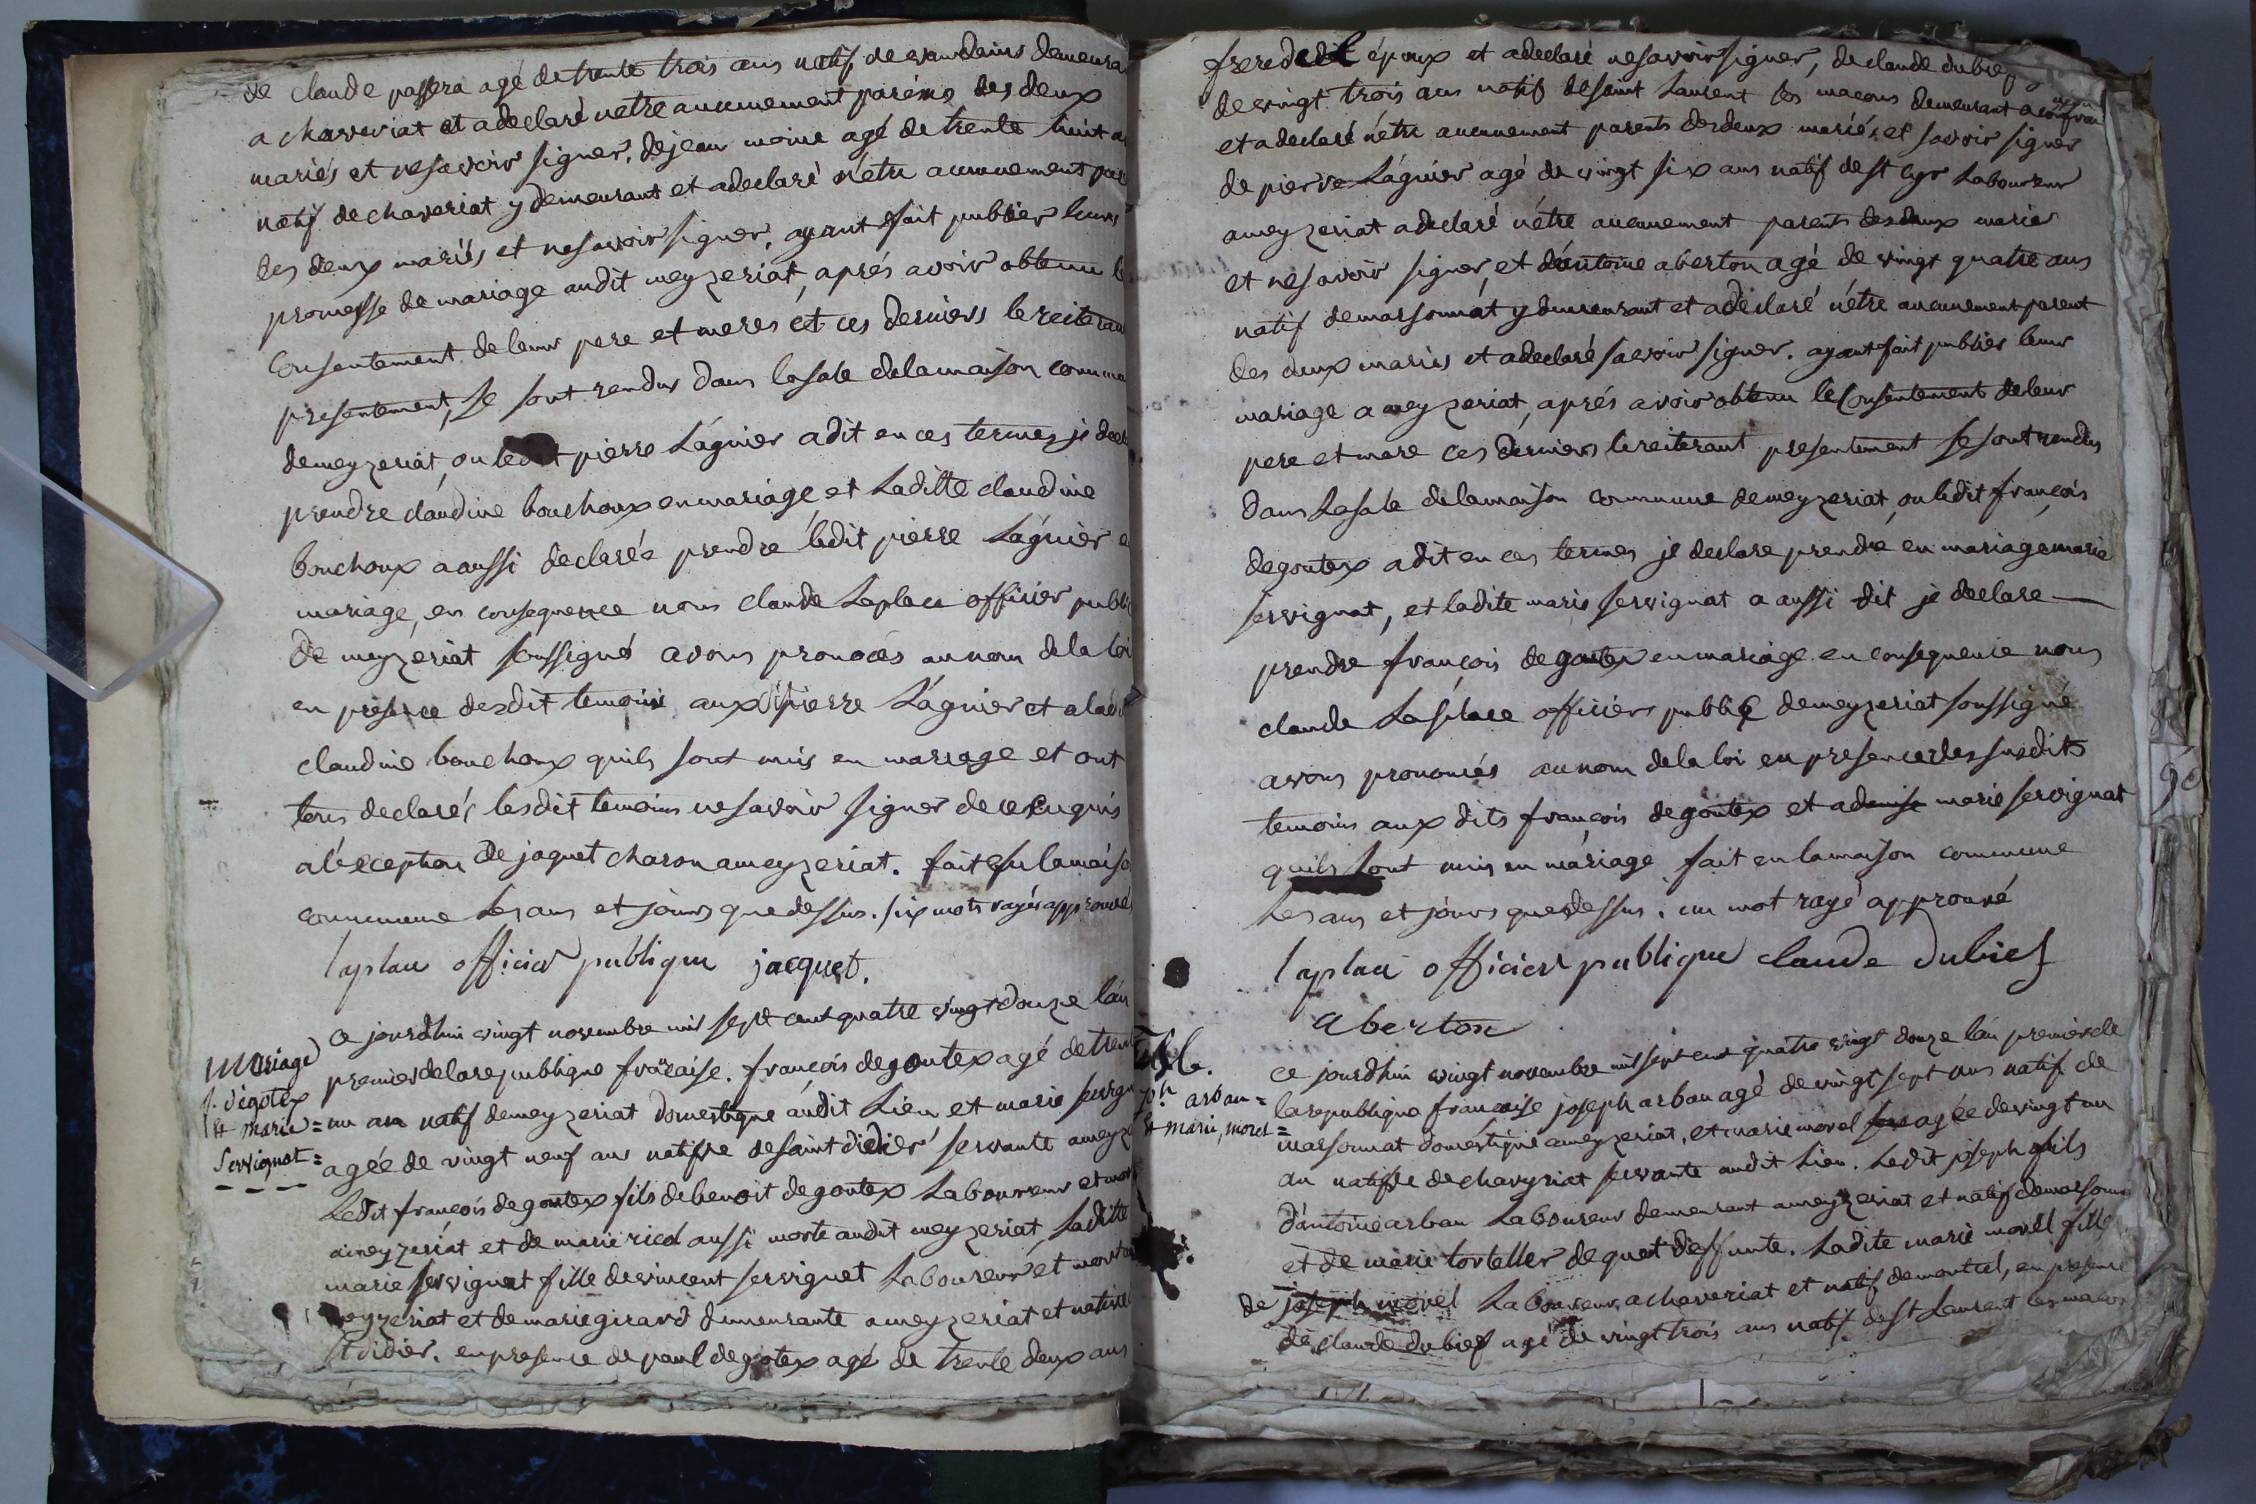 de claude passera agé de trente trois ans natif de vandeins demeura
a chaveriat et a declaré netre aucunement parens des deux
mariés et ne savoir signer, de jean moine agé de trente huit a
natif de chaveriat y demeurant et a declaré n'etre aucunement par
des deux mariés et ne savoir signer, ayant fait publier leurs
promesse de mariage audit meyzeriat, aprés avoir obtenu le
Consentement de leur pere et meres et ces derniers le reiterau
presentement, se sont rendus dans la sale de la maison commu
de meyzeriat, ou ledit pierre Lágnier a dit en ces termes je decl
prendre claudine bouchoux en mariage et Laditte claudine
bouchoux a aussi declarée prendre ledit pierre Lágnier e
mariage, en consequence nous claude Laplace officier publi
de meyzeriat soussigné avons pronocés au nom de la loi
en présence desdit temoins aux pierre Lágnier et a lad
claudine bouchoux quils sont unis en mariage et ont
tous declarés lesdit temoins ne savoir signer de ce enquis
a léxception de jaquet charon a meyzeriat. fait en la maiso
commune Les ans et jours que dessus. six mots rayés approuvés
laplace officier publique jacquet.
Mariage
f. degotex
et marie =
servignat =
Ce jourdhui vingt novembre mil sept cent quatre vingt douze lán
premier de la republique francaise. françois degoutex agé de trent
un an natif de meyzeriat domestique audit Lieu et marie servign
agée de vingt neuf ans natifve de saint didier servante a meyz
Ledit françois degoutex fils de benoit degoutex Laboureur et mort
a meyzériat et de marie ricol aussi morte audit meyzeriat, Laditte
marie servignat fille de vincent servignet Laboureur et mort a
meyzeriat et de marie girard demeurante a meyzeriat et native
st didier. en presence de paul degotex agé de trente deux ans
frere dudit époux et a declaré ne savoir signer, de claude dubief
de vingt trois ans natif de saint Laurent les macons demeurant a confran
et a declaré n'étre aucunement parents des deux mariés et savoir signer
de pierre Lágnier agé de vingt six ans natif de st cyr Laboureur
a meyzeriat a declaré n'étre aucunement parents des deux mariés
et ne savoir signer, et d'antoine aberton agé de vingt quatre ans
natif de marsonnat y demeurant et a declaré n'étre aucunement parent
des deux mariés et a declaré savoir signer. ayant fait publier leur
mariage a meyzeriat, aprés avoir obtenu le Consentement de leur
pere et mere ces derniers le reiterant presentement se sont rendus
dans La sale de la maison commune de meyzeriat, ou ledit françois
degoutex a dit en ces termes je declare prendre en mariage marie
servignat, et ladite marie servignat a aussi dit je declare —
prendre françois degoutex en mariage en consequence nous
claude Laplace officier public de meyzeriat soussigné
avons prononcés au nom de la loi en presence des susdits
temoins aux dits françois degoutex et a denise marie servignat
quils sont unis en mariage fait en la maison commune
Les ans et jours que dessus. un mot rayé approuvé
laplace officier publique claude dubief
aberton
jph arban =
et marie, morel =
ce jourdhui vingt novembre mil sept cent quatre vingt douze lán premier de
la republique francaise joseph arban agé de vingt sept ans natif de
marsonnat doméstique a meyzeriat, et marie morel agée de vingt un
an natifve de chavyriat servante audit Lieu. Ledit joseph fils
d'antoine arban Laboureur demeurant a meyzeriat et natif de marsonna
et de marie tortelier de quet deffunte. Ladite marie morel fille
de joseph morel Laboureur a chaveriat et natif de montcel, en presence
de claude dubief agé de vingt trois ans natif de st Laurent les macon